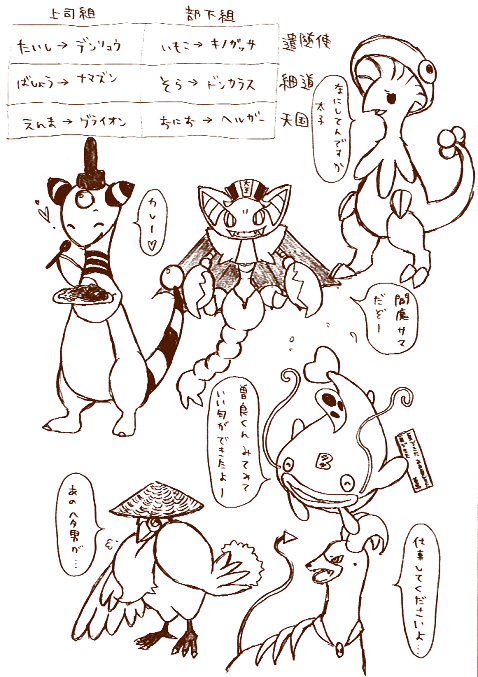 上司組 部下組
たいし→デンリュウ いもこ→キノガッサ 遣隋使
ばしょう→ナマズン そら→ドンカラス 細道
えんま→グライオン おにお→ヘルガー 天国
なにしてんですか
太子
カレー♡
天国
閻魔サマ
だぞー
曽良くんみてみて
いい句ができたよー
あのヘタ男が…
仕事してくださいよ…